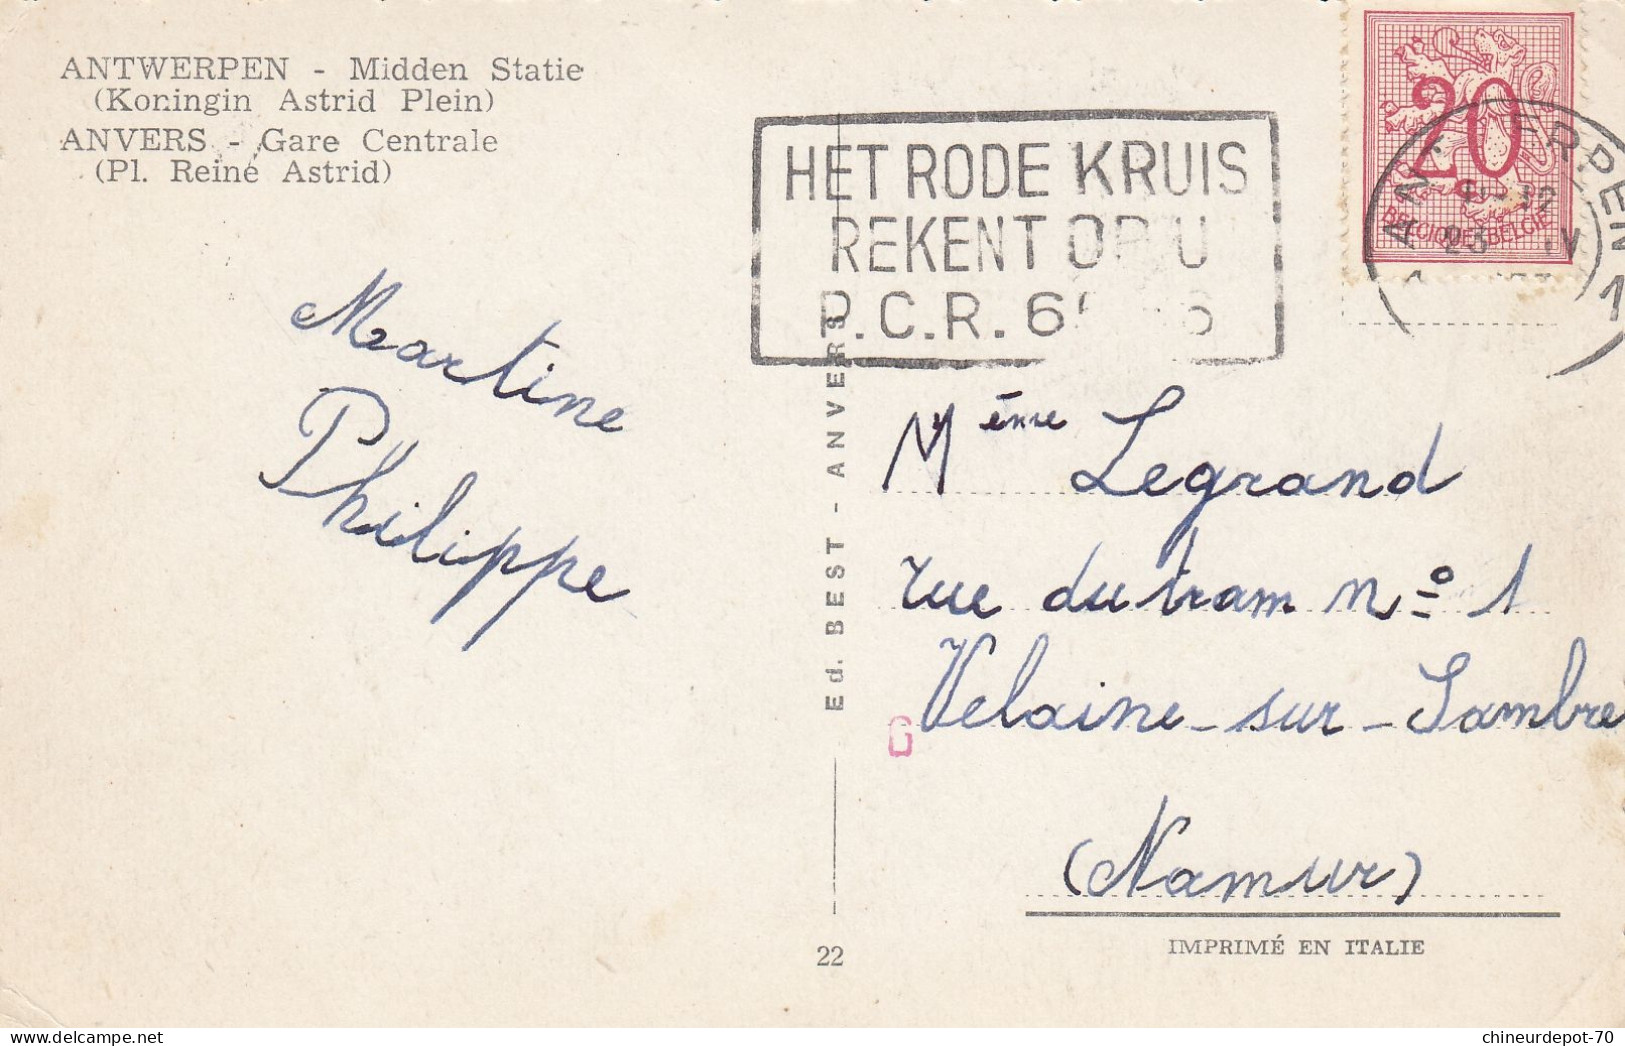 ANTWERPEN - Midden Statie
(Koningin Astrid Plein)
ANVERS - Gare Centrale
(Pl. Reine Astrid)
HET RODE KRUIS
REKENT OP U
P.C.R. 6
20
BELGIQUE-BELGIE
ANTWERPEN 1
23
Martine
Philippe
Ed. BEST - ANVERS
Mème Legrand
rue du tram nº 1
Velaine-sur-Sambre
G
(Namur)
IMPRIMÉ EN ITALIE
22
chineurdepot-70